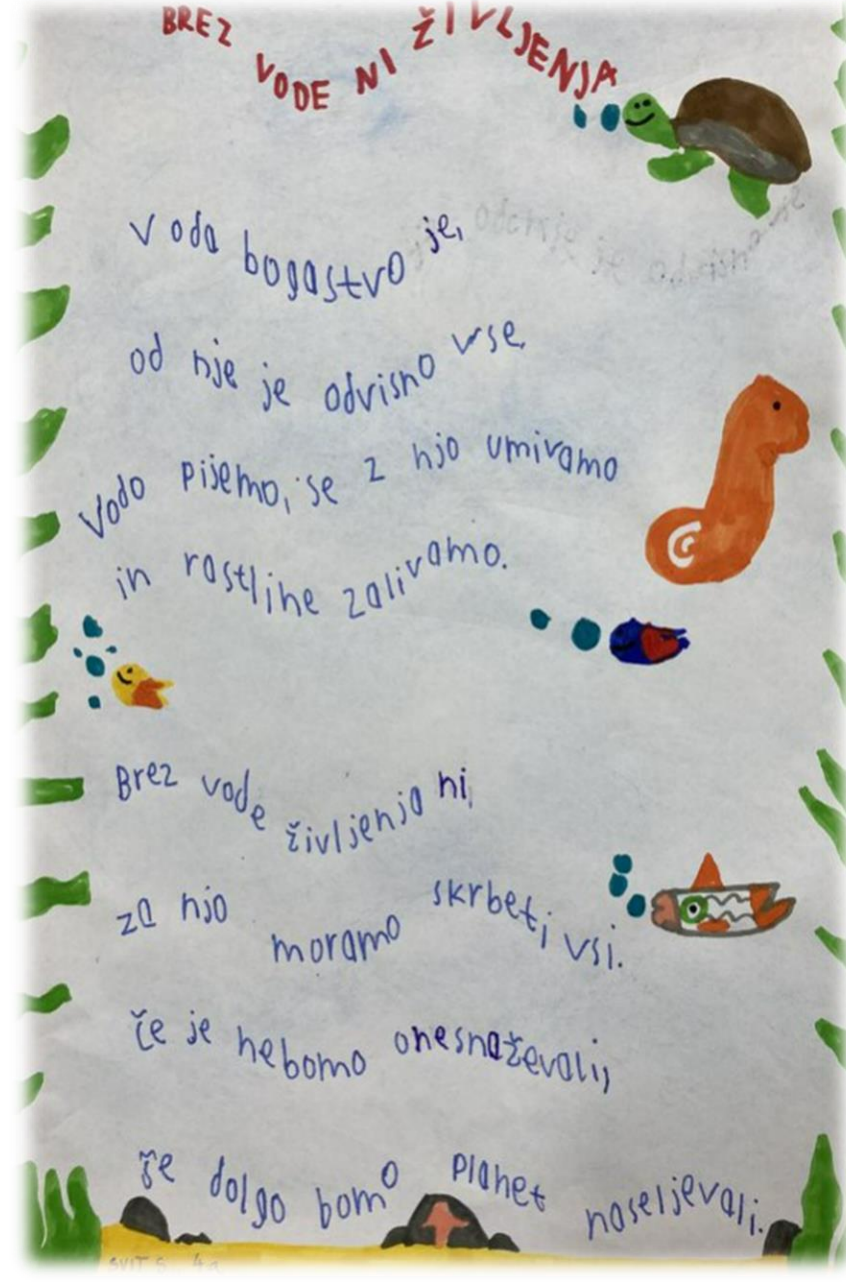 BREZ VODE NI ŽIVLJENJA
Voda bogastvo je,
od nje je odvisno vse.
Vodo pijemo, se z njo umivamo
in rastline zalivamo.
Brez vode življenja ni,
za njo moramo skrbeti vsi.
če je nebomo onesnaževali,
še dolgo bomo planet naseljevali.
SVIT S. 4.a